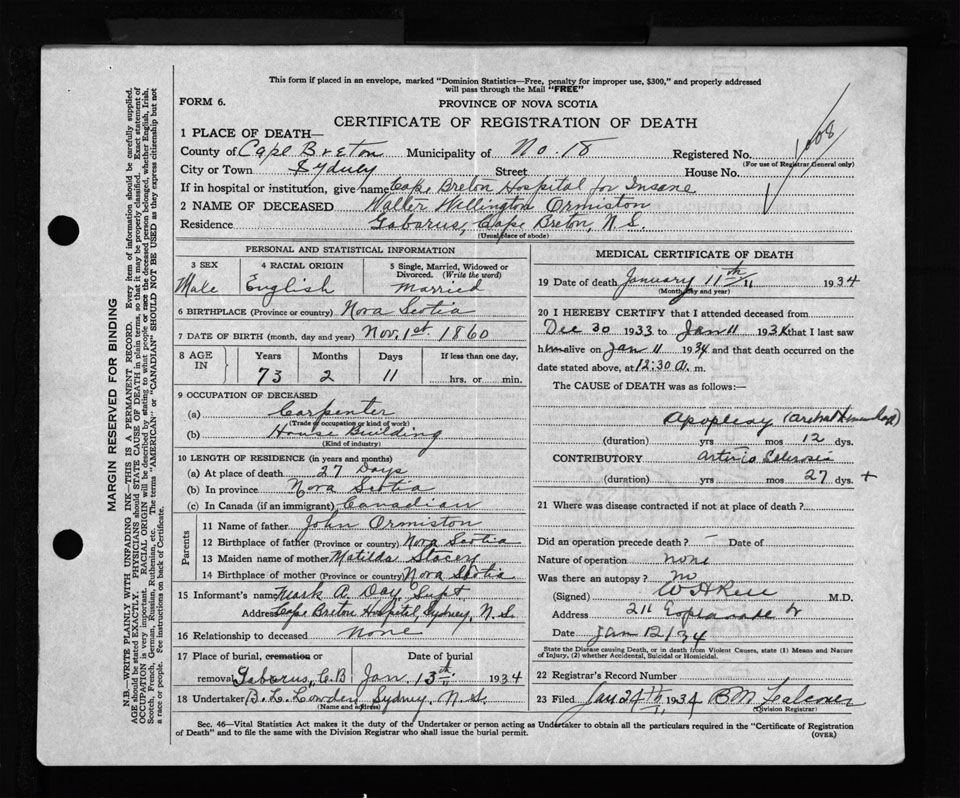 This form if placed in an envelope, marked "Dominion Statistics—Free, penalty for improper use, $300," and properly addressed
will pass through the Mail "FREE"
FORM 6.
PROVINCE OF NOVA SCOTIA
CERTIFICATE OF REGISTRATION OF DEATH
1 PLACE OF DEATH—
County of Cape Breton Municipality of No. 18 Registered No.
(For use of Registrar General only)
City or Town Sydney Street House No.
If in hospital or institution, give name Cape Breton Hospital for Insane
2 NAME OF DECEASED Walter Wellington Ormiston
Residence Gabarus, Cape Breton, N.S.
(Usual place of abode)
PERSONAL AND STATISTICAL INFORMATION
3 SEX 4 RACIAL ORIGIN 5 Single, Married, Widowed or
Divorced. (Write the word)
Male English Married
6 BIRTHPLACE (Province or country) Nova Scotia
7 DATE OF BIRTH (month, day and year) Nov. 1st. 1860
8 AGE IN Years Months Days If less than one day,
73 2 11 hrs. or min.
9 OCCUPATION OF DECEASED
(a) Carpenter
(Trade or occupation or kind of work)
(b) House Building
(Kind of industry)
10 LENGTH OF RESIDENCE (in years and months)
(a) At place of death 27 Days
(b) In province Nova Scotia
(c) In Canada (if an immigrant) Canadian
Parents
11 Name of father John Ormiston
12 Birthplace of father (Province or country) Nova Scotia
13 Maiden name of mother Matilda Stacey
14 Birthplace of mother (Province or country) Nova Scotia
15 Informant's name Mark A. Day, Supt.
Address Cape Breton Hospital, Sydney, N.S.
16 Relationship to deceased None
17 Place of burial, cremation or Date of burial
removal Gabarus, C.B Jan. 13th. 1934
18 Undertaker B. L. Lowden, Sydney, N.S.
(Name and address)
MEDICAL CERTIFICATE OF DEATH
19 Date of death January 11th 1934
(Month, day and year)
20 I HEREBY CERTIFY that I attended deceased from
Dec 30 1933 to Jan 11 1934 that I last saw
him alive on Jan 11 1934 and that death occurred on the
date stated above, at 12:30 a. m.
The CAUSE OF DEATH was as follows:—
Apoplexy
(duration) yrs mos 12 dys.
CONTRIBUTORY Arterio Sclerosis
(duration) yrs mos 27 dys. +
21 Where was disease contracted if not at place of death?
Did an operation precede death? – Date of
Nature of operation none
Was there an autopsy? no
(Signed) M.D.
Address 211 Esplanade
Date Jan 12/34
State the Disease causing Death, or in death from Violent Causes, state (1) Means and
Nature of Injury, (2) whether Accidental, Suicidal or Homicidal.
22 Registrar's Record Number
23 Filed Jan 24th 1934
(Division Registrar)
Sec. 46—Vital Statistics Act makes it the duty of the Undertaker or person acting as Undertaker to obtain all the particulars required in the "Certificate of Registration
of Death" and to file the same with the Division Registrar who shall issue the burial permit.
(OVER)
MARGIN RESERVED FOR BINDING
N.B.—WRITE PLAINLY WITH UNFADING INK—THIS IS A PERMANENT RECORD. Every item of information should be carefully supplied.
AGE should be stated EXACTLY. PHYSICIANS should STATE CAUSE OF DEATH in plain terms, so that it may be properly classified. Exact statement of
OCCUPATION is very important. RACIAL ORIGIN will be described by stating to what people or race the deceased person belonged, whether English, Irish,
Scotch, French, German, Russian, Ruthenian, etc. The terms "AMERICAN" or "CANADIAN" SHOULD NOT BE USED as they express citizenship but not
a race or people. See instructions on back of Certificate.